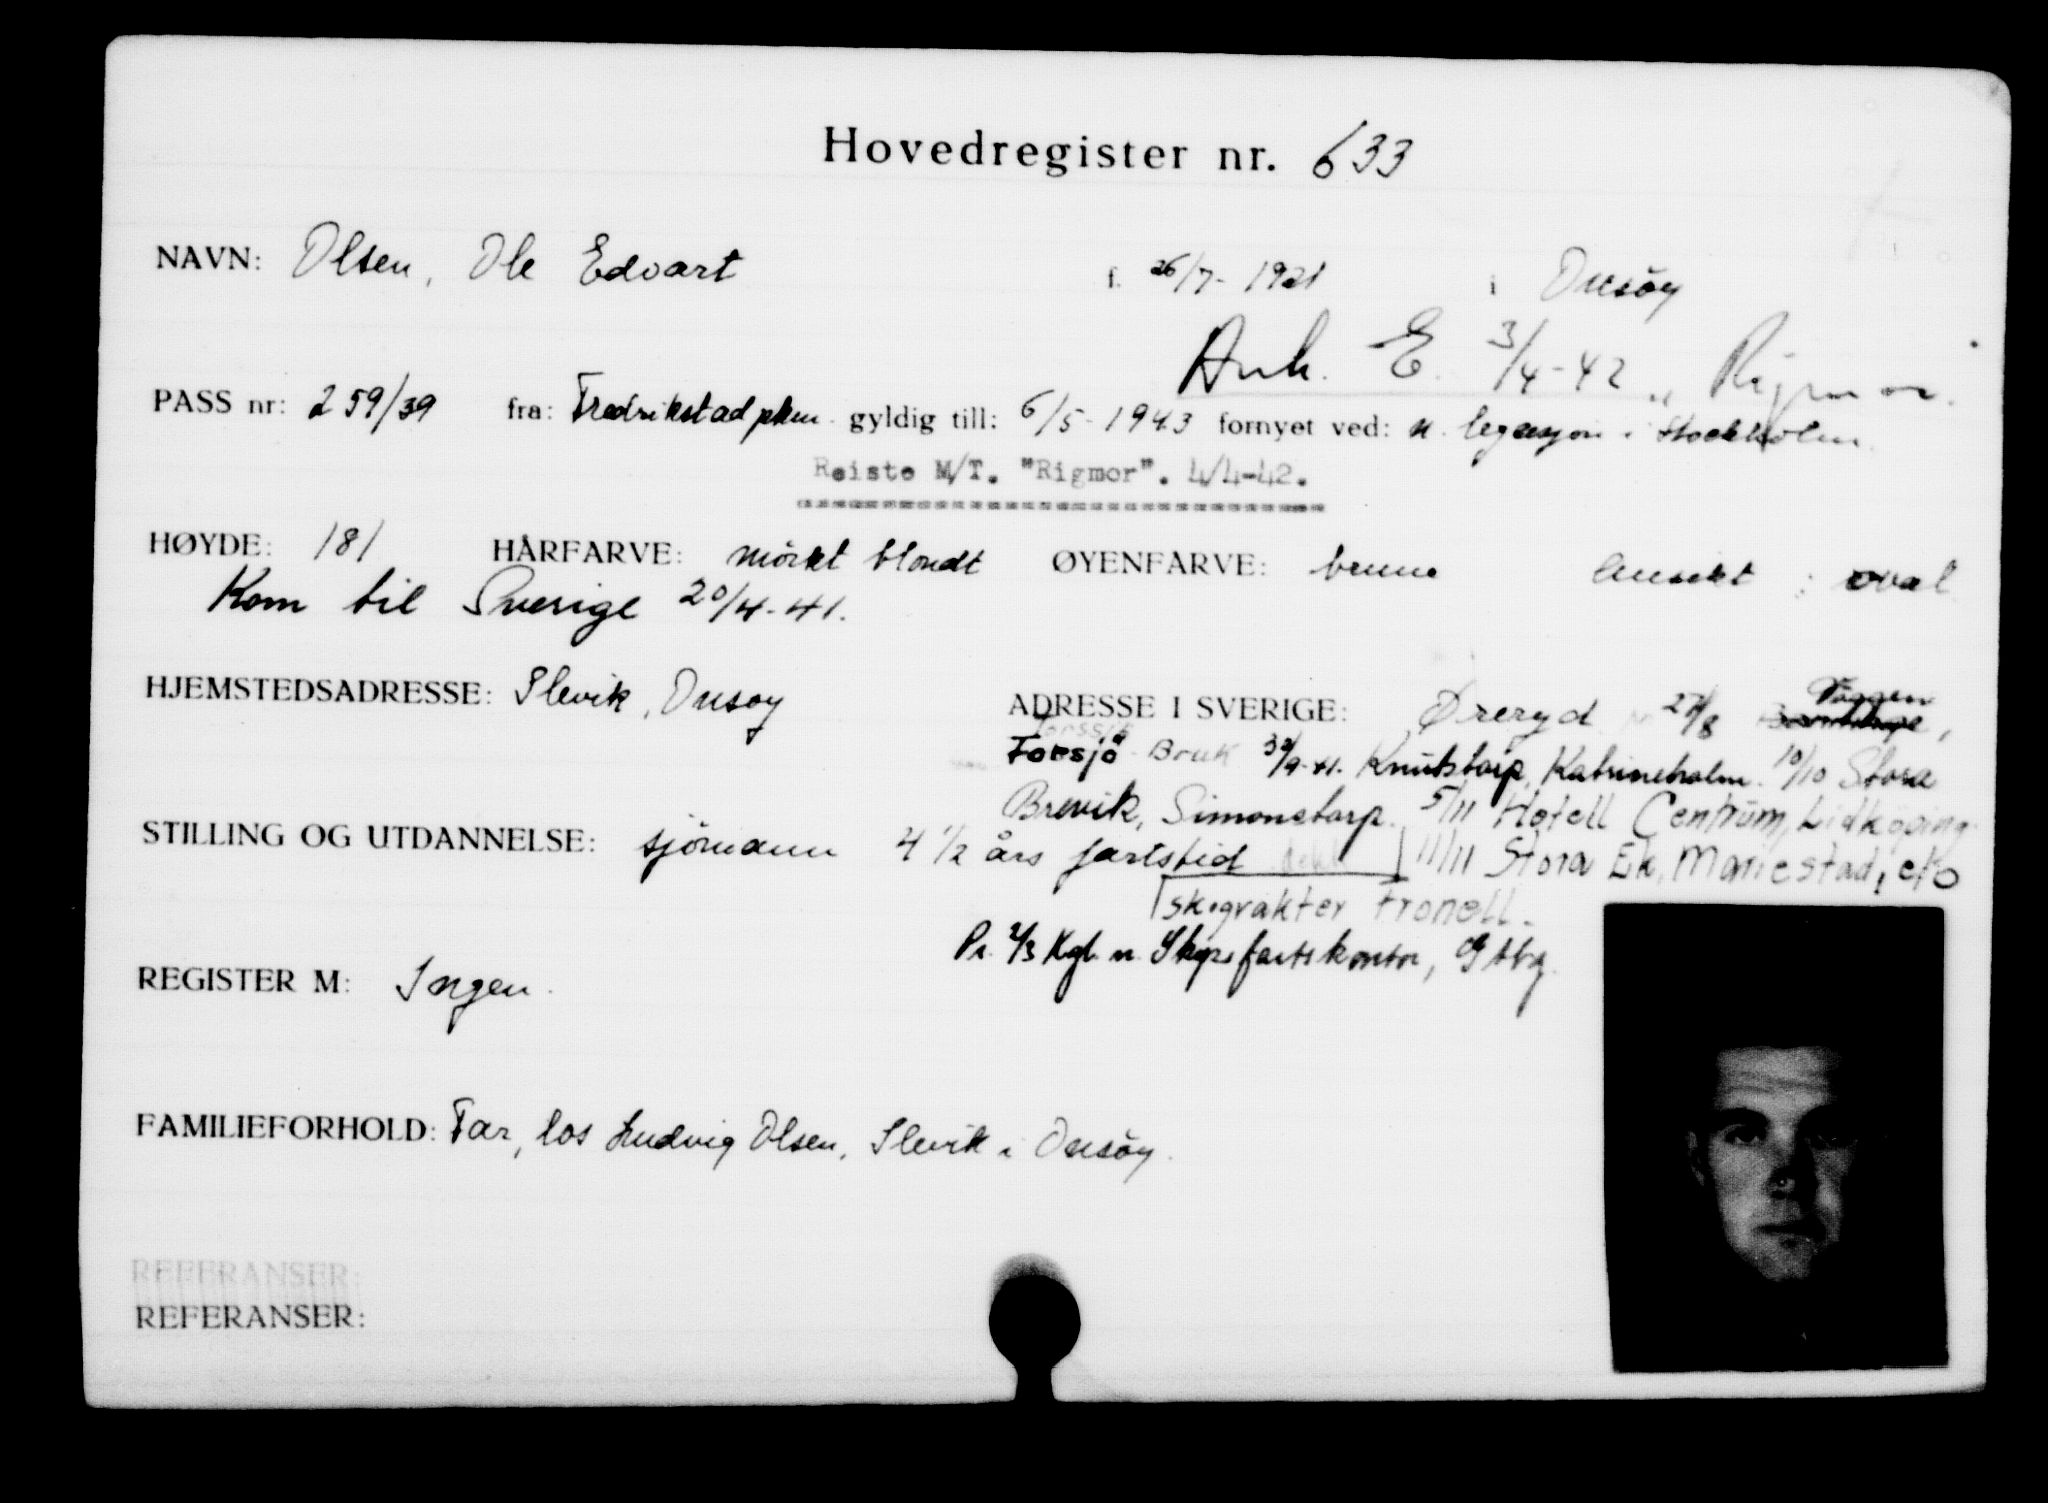 Hovedregister nr. 633
NAVN: Olsen, Ole Edvart f. 26/7-1921 i Onsöy
Ank. E. 3/4-42 „ Rigmor.
PASS nr: 259/39 fra: Fredrikstad pkm. gyldig till: 6/5-1943 fornyet ved: n. legasjon i Stockholm.
Reiste M/T. "Rigmor". 4/4-42.
HØYDE: 181 HÅRFARVE: mörkt blondt ØYENFARVE: brune Ansikt : oval
Kom til Sverige 20/4-41.
HJEMSTEDSADRESSE: Slevik, Onsøy ADRESSE I SVERIGE: Øreryd 27/8 Væggen,
Forsjö Bruk 30/9-41. Knutstorp, Katrineholm. 10/10 Stora
Brevik, Simonstorp. 5/11 Hotell Centrum, Lidköping.
STILLING OG UTDANNELSE: sjömann 4 1/2 års fartstid 11/11 Stora Ek, Mariestad, c/o
skogvakter Fronell.
Pr. 2/3 Kgl. n. Skipsfartskontor, Gtbg.
REGISTER M: Ingen.
FAMILIEFORHOLD: Far, los Ludvig Olsen, Slevik i Onsöy.
REFERANSER:
REFERANSER: